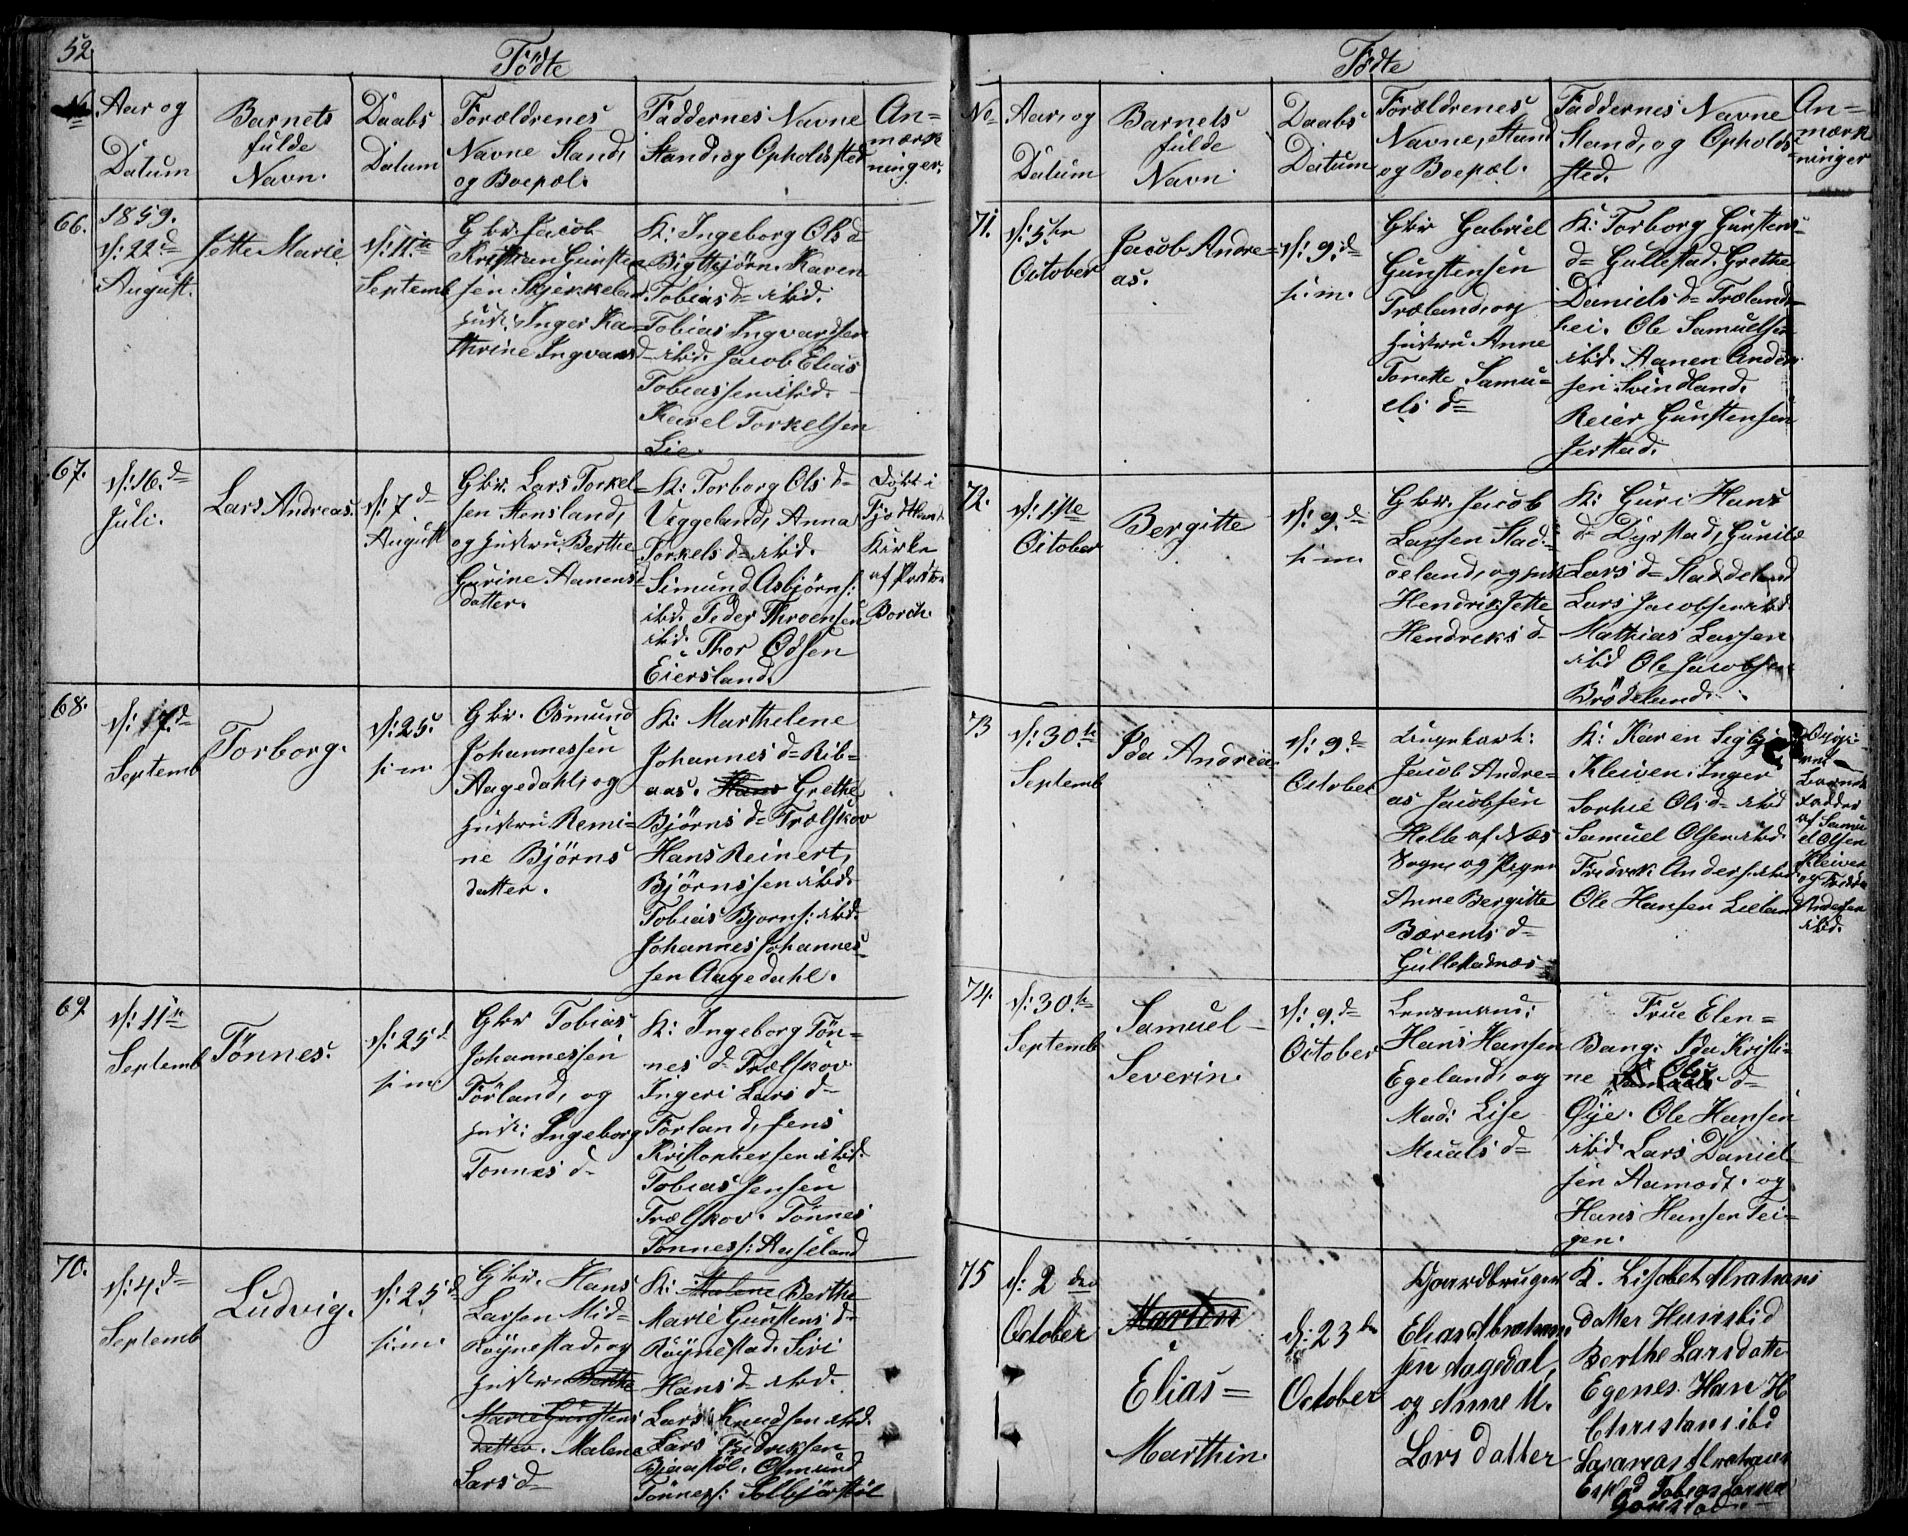 52
Födte
No
Aar og
Datum
Barnets
fulde
Navn.
Daabs
Datum
Forældrenes
Navne Stand,
og Boepæl.
Faddernes Navne
Stand, og Opholdssted
An=
mærk
ninger.
66.
1859.
d: 22d
August.
Jette Marie
d: 11te
Septemb
Gbr. Jacob
Kristian Gunsten
sen Skjekkeland
Hust: Inger Ka=
thrine Ingvars
d
K: Ingeborg Ols d
Bigtbjörn. Karen
Tobias d= ibid.
Tobias Ingvardsen
ibid. Jacob Elias
Tobiassen ibid.
Karel Torkelsen
Lie.
67.
d: 16.d
Juli.
Lars Andreas.
d: 7d
August
Gbr. Lars Torkel=
sen Stensland,
og Hustru Berthe
Gurine Aanens
datter.
K: Torborg Ols d=
Veggeland, Anna
Torkels d= ibid.
Simund Asbjörns:
ibid. Peder Throensen
ibid. Thor Odsen
Eiersland.
Döbt i
Fjotland
Kirke
af Præsten
Borch.
68.
d: 17.d
Septemb
Torborg.
d: 25.
s: m.
Gbr. Osmund
Johannessen
Aagedahl, og
Hustru Remi=
ne Björns
datter.
K: Marthelene
Johannes d= Rib=
aas. Hans Grethe
Björns d= Trælskov
Hans Reinert
Björnssen ibid.
Tobias Bjorns: ibid.
Johannes Johannes=
sen Aagedahl.
69
d: 11te
Septemb
Tönnes.
d: 25d
s: m.
Gbr Tobias
Johannessen
Förland, og
Hust: Ingeborg
Tonnes d-
K: Ingeborg Tön=
nes d- Trælskov
Ingeri Lars d-
Förland, Jens
Kristophersen ibid.
Tobias Jensen
Trælskov. Tönnes
Tönness: Aaseland
70.
d: 4.d
Septemb
Ludvig.
d: 25d
s: m.
Gbr. Hans
Larsen Mid=
Röynestad, og
Hustru Berthe
Marie Gunstens
datter. Malene
Lars d=
K: Malene Berthe
Marie Gunstens d=
Röynestad. Siri
Hans d= ibid.
Lars Knudsen ibid.
Lars Fredriksen
Osmund
Tönnes:
Födte
No
Aar, og
Datum
Barnets
fulde
Navn
Daabs
Datum
Forældrenes
Navne, Stand
og Boepæl.
Faddernes Navne
Stand, og Opholds
sted.
An=
mærk
ninger
71.
d: 5te
October
Jacob Andre=
as.
d: 9.d
s: m.
Gbr Gabriel
Gunstensen
Træland, og
Hustru Anne
Tonette Samu=
els d=
K: Torborg Gunstens
d= Gullestad. Grethe
Daniels d= Træland=
hei. Ole Samuelsen
ibid. Aanen Ander
sen Svindland.
Reier Gunstensen
Jerstad.
72.
d: 1ste
October
Bergitte
d: 9.d
s: m.
Gbr. Jacob
Larsen Stad=
deland, og Hust
Hendrikjette
Hendriks d-
K: Guri Hans
d= Dyrstad, Gunild
Lars d= Staddeland
Lars Jacobsen ibid
Mathias Larsen
ibid Ole Jacobsen
Brödeland.
73
d: 30.te
Septemb
Ida Andrea
d: 9d
October
Ungekarl:
Jacob Andre=
as Jacobsen
Helle af Næs
Sogn, og Pigen
Anne Bergitte
Bærents d-
Gullestadnæs
K: Karen
Kleiven. Inger
Sophie Ols d= ibid
Samuel Olsen ibid.
Fredrek Anders: ibid
Ole Hansen Lieland
Opgi-
vne
Barnets
Fadder
af Samu
el Olsen
Kleiven
og Fredrik
Andersen
ibid.
74.
d: 30.te
Septemb.
Samuel
Severin.
d: 9.d
October
Lensmand:
Hans Hansen
Egeland, og
Mad: Lise
d=
Frue Elen=
Bang: Ida Kristi=
ne d=
Öye. Ole Hansen
ibid. Lars Daniel
sen Aamodt. og
Hans Hansen Tei=
gen.
75
d: 2 den
October
Martin
Elias=
Marthin
d: 23de
October
Gaardbruger
Elias Abraham
sen Aagedal,
og Anne M.
Lars datter
K. Lisabet Abrahams
datter
Berthe Larsdatter
Egenes. Han H
Christans ibd
Lasaras Abrahams
Tobias Larsen